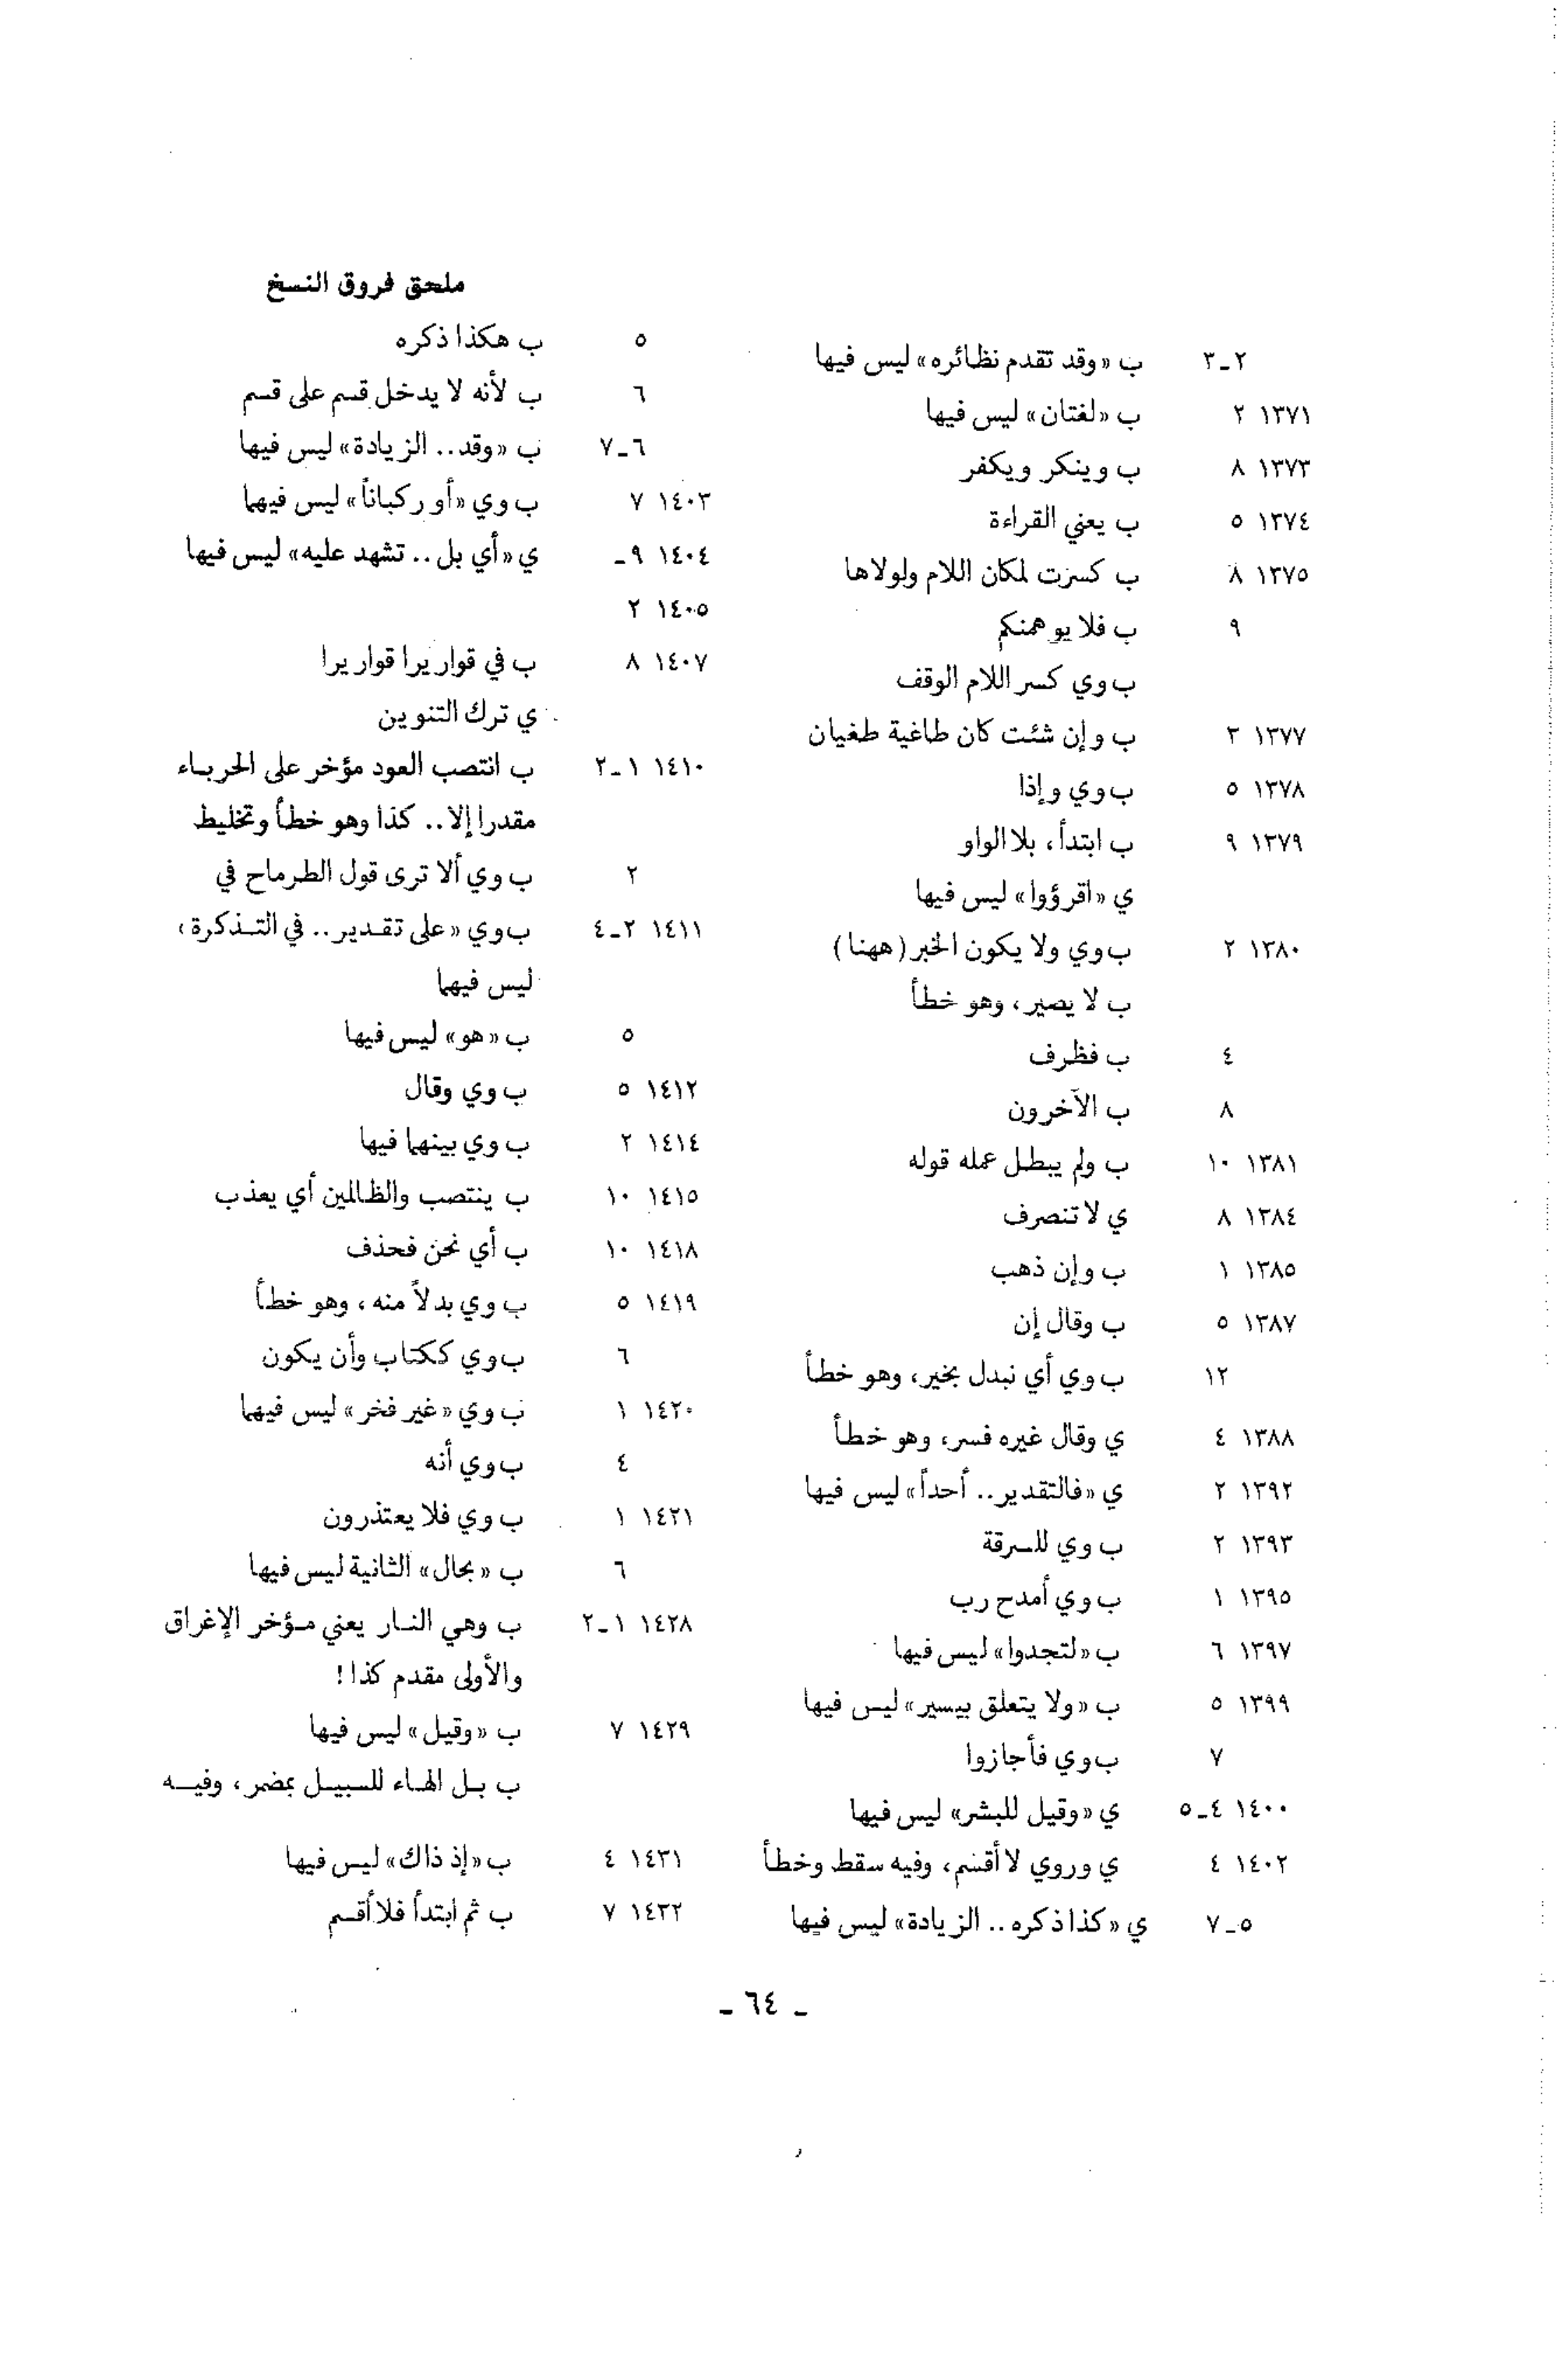 ملحق فروق النسخ
٢ـ٣ ب «وقد تقدم نظائره» ليس فيها
١٣٧١ ٢ ب «لغتان» ليس فيها
١٣٧٣ ٨ ب وينكر ويكفر
١٣٧٤ ٥ ب يعني القراءة
١٣٧٥ ٨ ب كسرت لمكان اللام ولولاها
٩ ب فلا يوهمنكم
ب وي كسر اللام الوقف
١٣٧٧ ٣ ب وإن شئت كان طاغية طغيان
١٣٧٨ ٥ ب وي وإذا
١٣٧٩ ٩ ب ابتدأ، بلا الواو
ي «اقرؤوا» ليس فيها
١٣٨٠ ٢ ب وي ولا يكون الخبر (ههنا)
ب لا يصير، وهو خطأ
٤ ب فظرف
٨ ب الآخرون
١٣٨١ ١٠ ب ولم يبطل عمله قوله
١٣٨٤ ٨ ي لا تنصرف
١٣٨٥ ١ ب وإن ذهب
١٣٨٧ ٥ ب وقال إن
١٢ ب وي أي نبدل بخير، وهو خطأ
١٣٨٨ ٤ ي وقال غيره فسر، وهو خطأ
١٣٩٢ ٢ ي «فالتقدير.. أحداً» ليس فيها
١٣٩٣ ٢ ب وي للسرقة
١٣٩٥ ١ ب وي أمدح رب
١٣٩٧ ٦ ب «لتجدوا» ليس فيها
١٣٩٩ ٥ ب «ولا يتعلق بيسير» ليس فيها
٧ ب وي فأجازوا
١٤٠٠ ٤ـ٥ ي «وقيل للبشر» ليس فيها
١٤٠٢ ٤ ي وروي لا أقسم، وفيه سقط وخطأ
٥ـ٧ ي «كذا ذكره.. الزيادة» ليس فيها
٥ ب هكذا ذكره
٦ ب لأنه لا يدخل قسم على قسم
٦ـ٧ ب «وقد.. الزيادة» ليس فيها
١٤٠٣ ٧ ب وي «أو ركباناً» ليس فيهما
١٤٠٤ ٩ـ ي «أي بل.. تشهد عليه» ليس فيها
١٤٠٥ ٢
١٤٠٧ ٨ ب في قواريرا قواريرا
ي ترك التنوين
١٤١٠ ١ـ٢ ب انتصب العود مؤخر على الحرباء
مقدرا إلا.. كذا وهو خطأ وتخليط
٢ ب وي ألا ترى قول الطرماح في
١٤١١ ٢ـ٤ ب وي «على تقدير.. في التذكرة»
ليس فيهما
٥ ب «هو» ليس فيها
١٤١٢ ٥ ب وي وقال
١٤١٤ ٢ ب وي بينهما فيها
١٤١٥ ١٠ ب ينتصب والظالمين أي يعذب
١٤١٨ ١٠ ب أي نحن فحذف
١٤١٩ ٥ ب وي بدلاً منه، وهو خطأ
٦ ب وي ككتاب وأن يكون
١٤٢٠ ١ ب وي «غير فخر» ليس فيهما
٤ ب وي أنه
١٤٢١ ١ ب وي فلا يعتذرون
٦ ب «بحال» الثانية ليس فيها
١٤٢٨ ١ـ٢ ب وهي النار يعني مؤخر الإغراق
والأولى مقدم كذا!
١٤٢٩ ٧ ب «وقيل» ليس فيها
ب بل الهاء للسبيل بمضمر، وفيه
١٤٣١ ٤ ب «إذ ذاك» ليس فيها
١٤٣٢ ٧ ب ثم ابتدأ فلا أقسم
ـ ٦٤ ـ